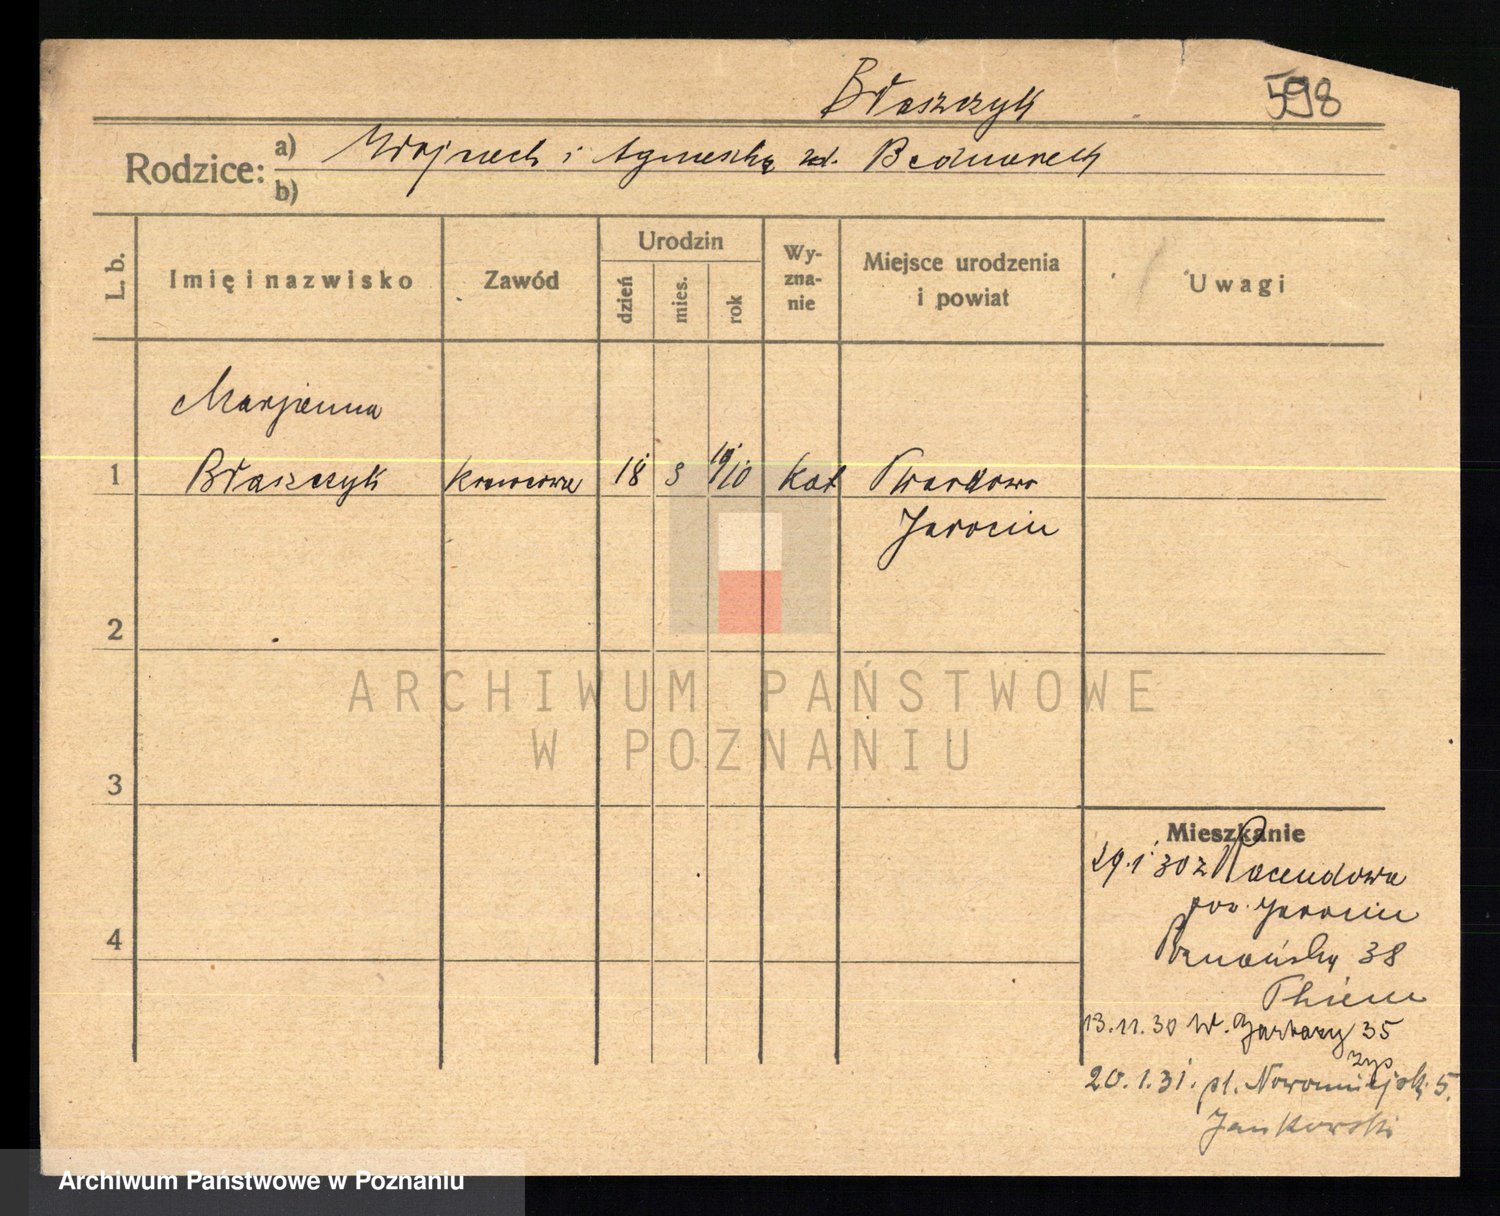 Błaszczyk
598
Rodzice:
a) Wojciech i Agnieszka zd. Bednarek
b)
L. b.
Imię i nazwisko
Zawód
Urodzin
dzień
mies.
rok
Wy-
zna-
nie
Miejsce urodzenia
i powiat
Uwagi
Marjanna
1 Błaszczyk krawcowa 18 3 1910 kat Twardowo
Jarocin
2
3
4
Mieszkanie
29.1 30 z Racendowa
pow. Jarocin
Poznańska 38
Thiem
13.11.30 W. Garbary 35
20.1.31. pl. Nowomiejski 5.
Jankowski
ARCHIWUM PAŃSTWOWE
W POZNANIU
Archiwum Państwowe w Poznaniu